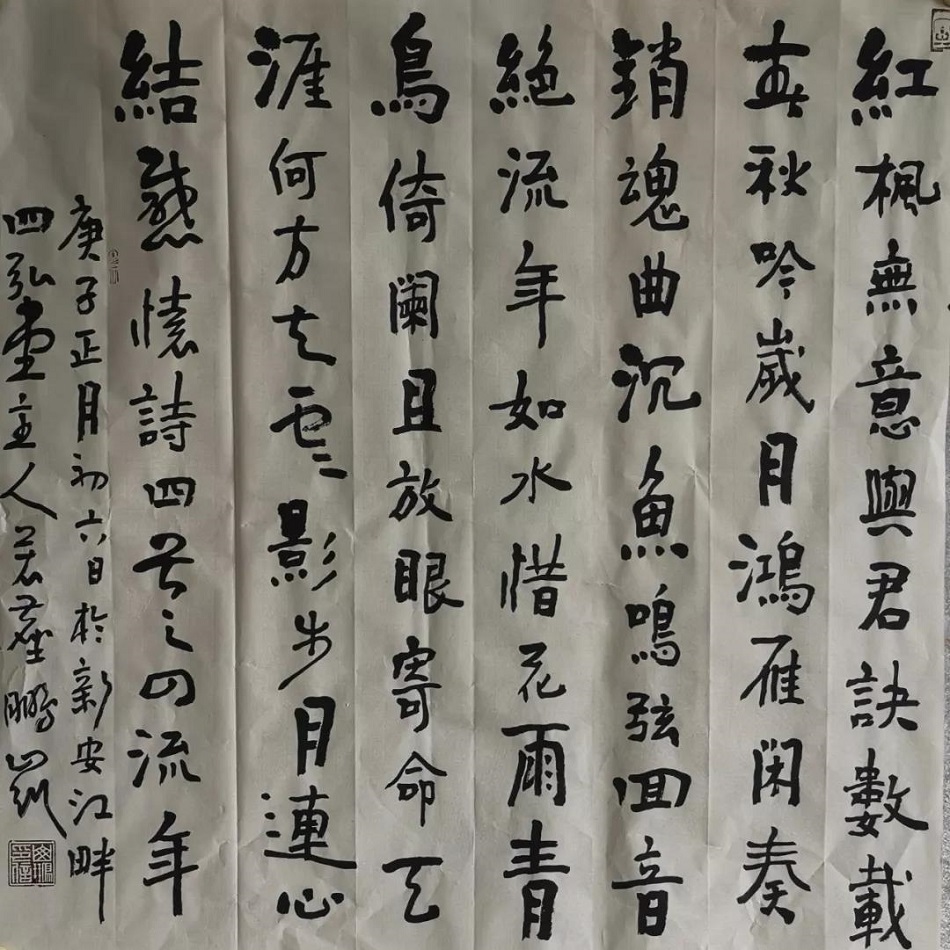 紅楓無意與君訣數載
春秋吟歲月鴻雁閑奏
銷魂曲沉魚鳴弦回音
絕流年如水惜花雨青
鳥倚闌且放眼寄命天
涯何方去雲影步月連心
結愁懷詩四首之四流年
庚子正月初六日於新安江畔
四弘堂主人